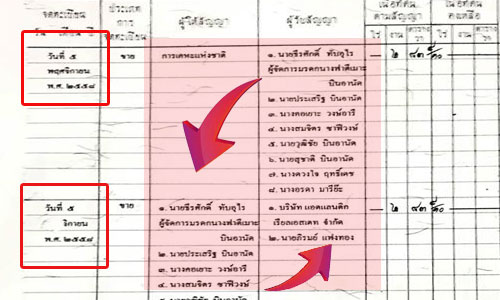 จดทะเบียน
วัน เดือน ปี
ประเภท
การ
จดทะเบียน
ผู้ให้สัญญา
ผู้รับสัญญา
เนื้อที่ดิน
ตามสัญญา
ไร่ งาน ตาราง
วา
เนื้อที่ดิน
คงเหลือ
ไร่ งาน ตาราง
วา
วันที่ ๕
พฤศจิกายน
พ.ศ. ๒๕๕๘
ขาย
การเคหะแห่งชาติ
๑. นายธีรศักดิ์ ทับอุไร
ผู้จัดการมรดกนางฟาตีเมาะ
บินอานัด
๒. นายประเสริฐ บินอานัด
๓. นางคอเยาะ วงษ์อารี
๔. นางสมจิตร ชาฟีวงษ์
๕. นายวุฒิชัย บินอานัด
๖. นายสุชาติ บินอานัด
๗. นางดวงใจ ฤทธิ์เดช
๘. นางอรดา มารีย๊ะ
วันที่ ๕
จิกายน
พ.ศ. ๒๕๕๘
ขาย
๑. นายธีรศักดิ์ ทับอุไร
ผู้จัดการมรดกนางฟาตีเมาะ
บินอานัด
๒. นายประเสริฐ บินอานัด
๓. นางคอเยาะ วงษ์อารี
๔. นางสมจิตร ชาฟีวงษ์
๑. บริษัท แอคแลนติก
เรียลเอสเตท จำกัด
๒. นายภิรมย์ แพ่งทอง